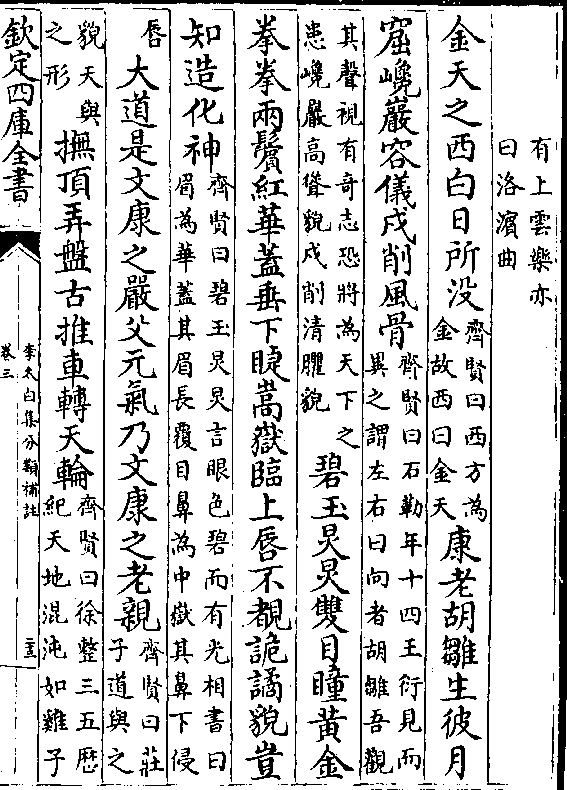 有上雲樂亦
曰洛濱曲
金天之西白日所没齊賢曰西方為金故西曰金天康老胡雛生彼月
窟巉巖容儀戍削風骨齊賢曰石勒年十四王衍見而異之謂左右曰向者胡雛吾觀
其聲視有奇志恐將為天下之患巉巖高聳貌戍削清臞貌碧玉炅炅雙目瞳黃金
拳拳兩鬢紅華蓋垂下睫嵩嶽臨上唇不覩詭譎貌豈
知造化神齊賢曰碧玉炅炅言眼色碧而有光相書曰眉為華蓋其眉長覆目鼻為中嶽其鼻下侵
唇大道是文康之嚴父元氣乃文康之老親齊賢曰莊子道與之
貌天與之形撫頂弄盤古推車轉天輪齊賢曰徐整三五厯紀天地混沌如雞子
欽定四庫全書
李太白集分類補註
卷三